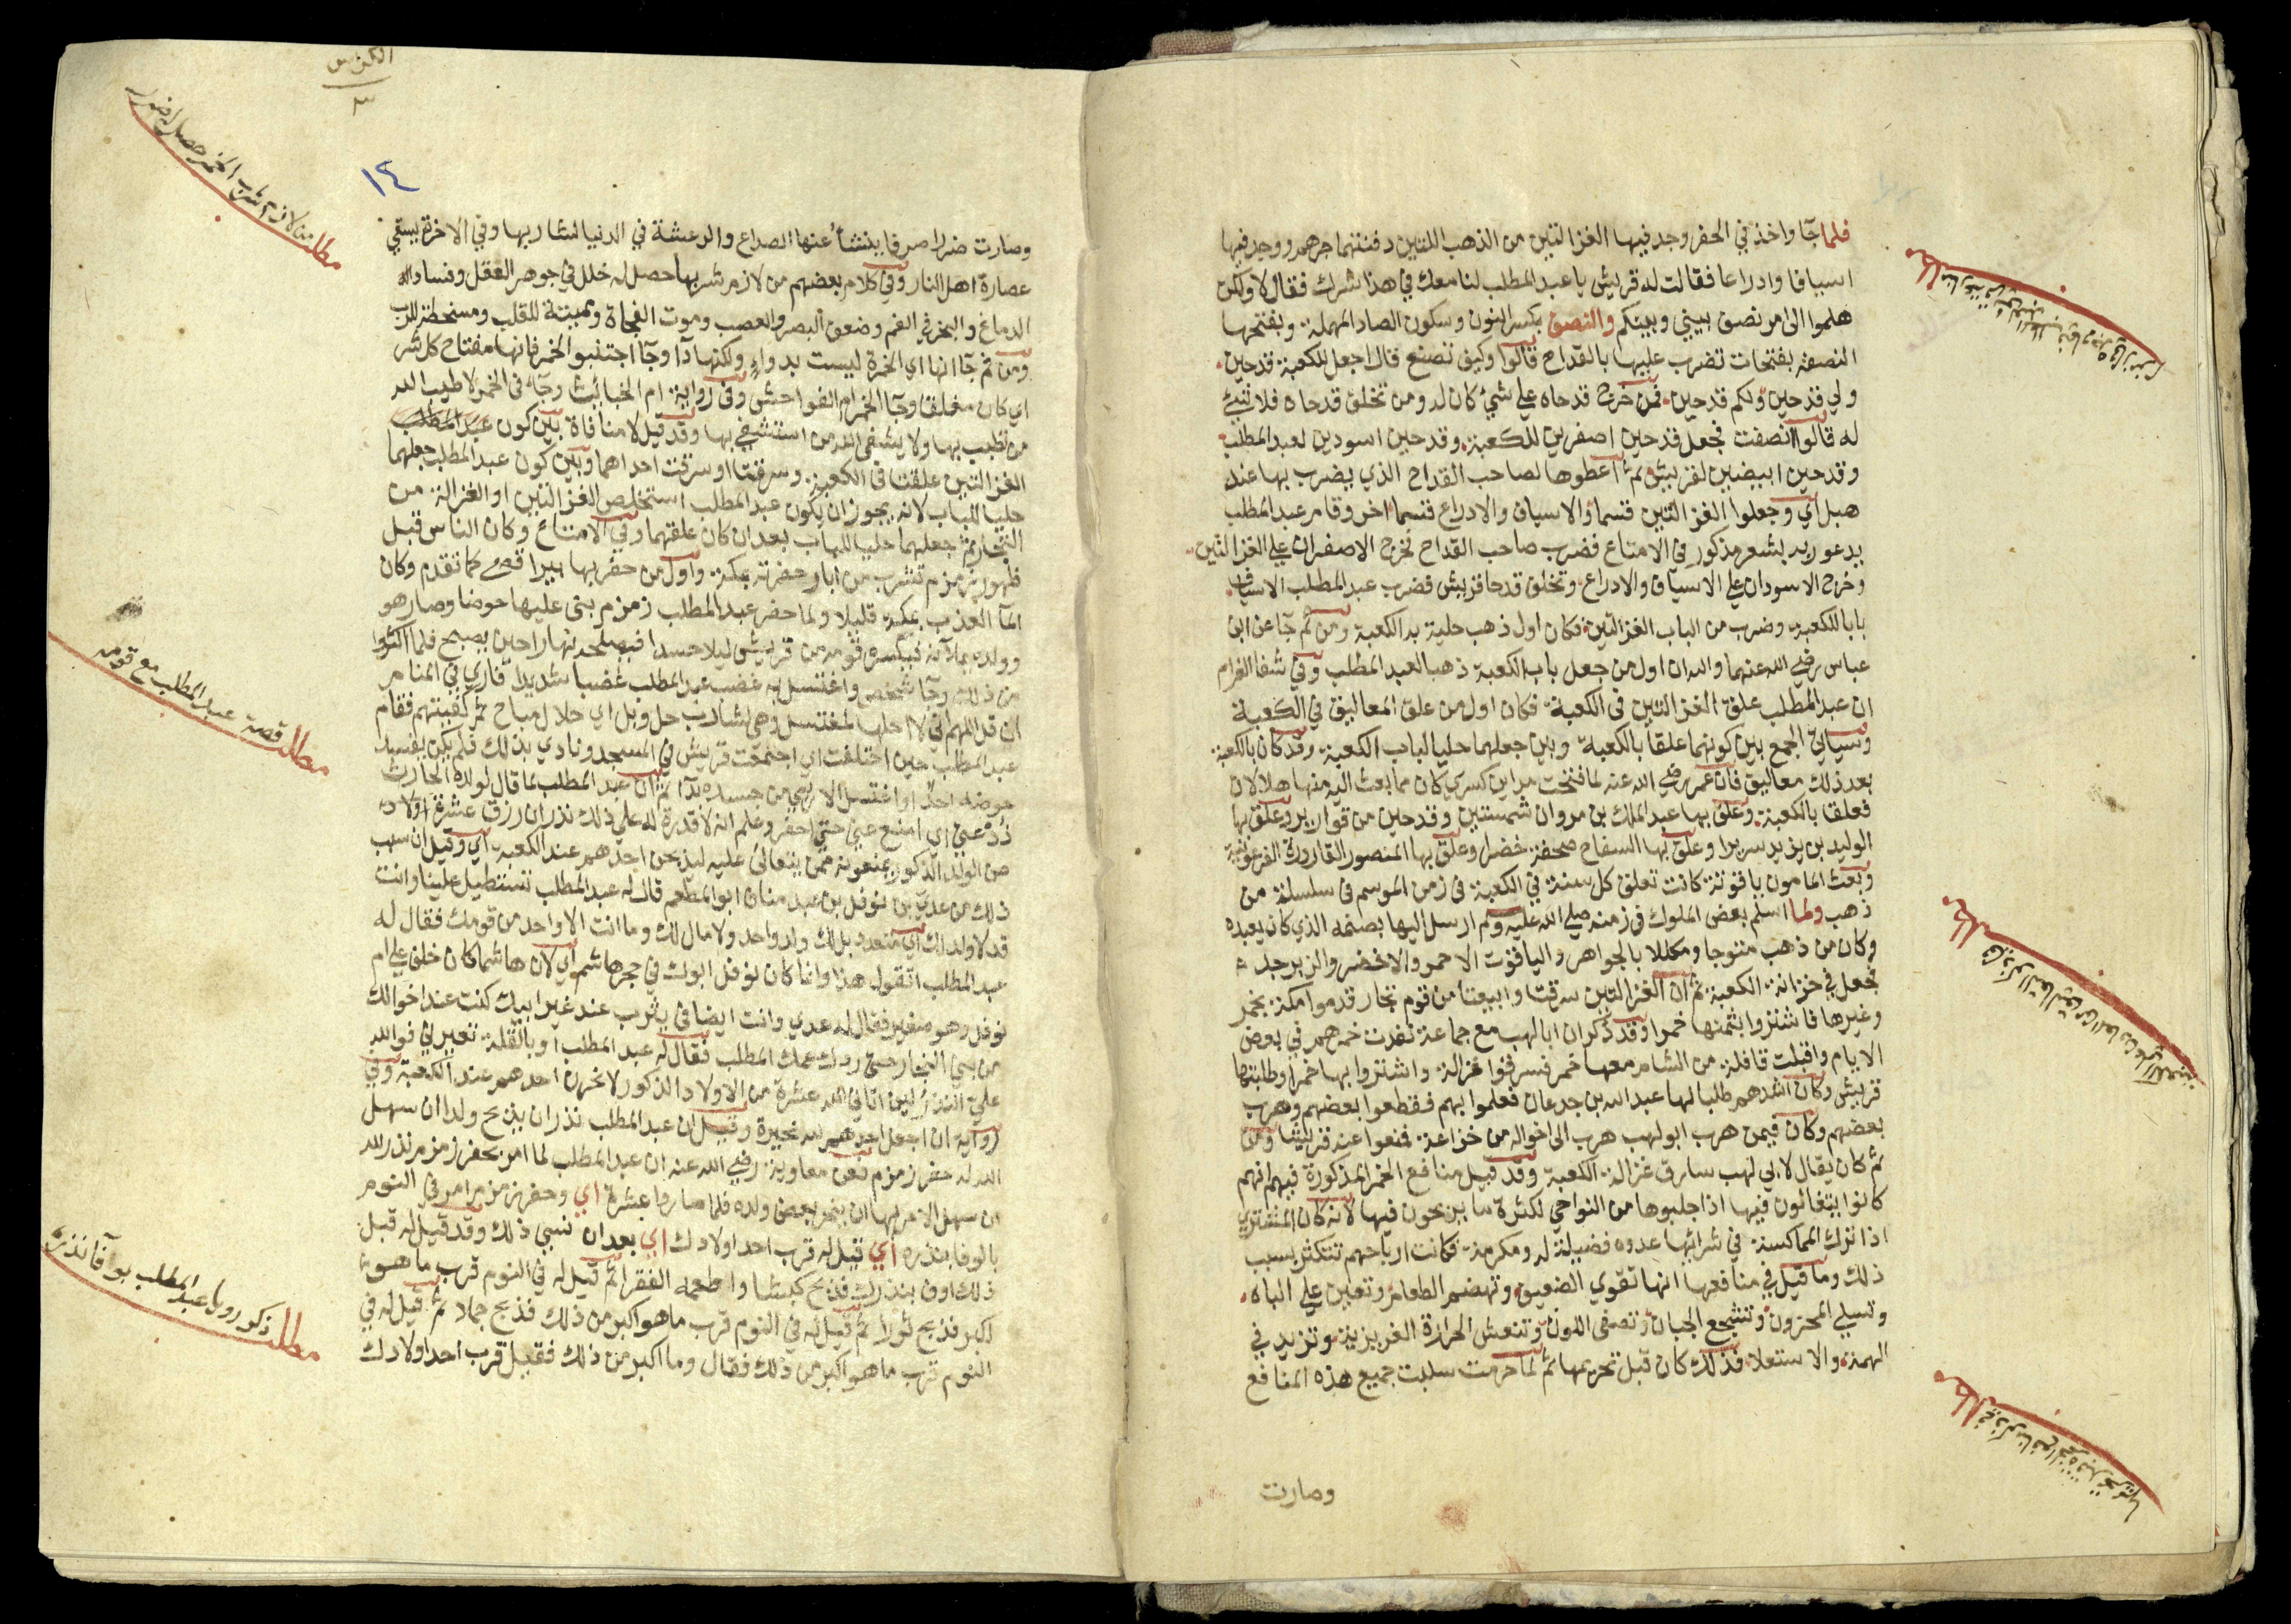 فلما جآ واخذ في الحفر وجد فيها الغزالتين من الذهب اللتين دفنتهما جرهم ووجد فيها
اسيافا وادراعا فقالت له قريش يا عبد المطلب لنا معك في هذا شرك فقال لا ولكن
هلموا الى امر نصف بيني وبينكم والنصف بكسر النون وسكون الصاد المهملة وبفتحها
النصفة بفتحات تضرب عليها بالقداح قالوا وكيف تصنع قال اجعل للكعبة قدحين
ولي قدحين ولكم قدحين فمن خرج قدحاه على شئ كان له ومن تخلف قدحاه فلا شئ
له قالوا انصفت فجعل قدحين اصفرين للكعبة وقدحين اسودين لعبد المطلب
وقدحين ابيضين لقريش ثم اعطوها لصاحب القداح الذي يضرب بها عند
هبل اي وجعلوا الغزالتين قسما والاسياف والادراع قسما اخر وقام عبد المطلب
يدعو ربه بشعر مذكور في الامتاع فضرب صاحب القداح فخرج الاصفران على الغزالتين
وخرج الاسودان على الاسياف والادراع وتخلف قدحا قريش فضرب عبد المطلب الاسياف
بابا للكعبة وضرب من الباب الغزالتين فكان اول ذهب حلية به الكعبة ومن ثم جآ عن ابن
عباس رضي الله عنهما والله ان اول من جعل باب الكعبة ذهبا لعبد المطلب وفي شفا الغرام
ان عبد المطلب علق الغزالتين في الكعبة فكان اول من علق المعاليق في الكعبة
وسياتي الجمع بين كونهما علقا بالكعبة وبين جعلهما حليا لباب الكعبة وقد كان بالكعبة
بعد ذلك معاليق فان عمر رضي الله عنه لما فتحت مداين كسرى كان مما بعث اليه منها هلالان
فعلقا بالكعبة وعلق بها عبد الملك بن مروان شمستين وقدحين من قوارير وعلق بها
الوليد بن يزيد سريرا وعلق بها السفاح صحفة خضرا وعلق بها المنصور القارورة الفرعونية
وبعث المامون ياقوتة كانت تعلق كل سنة في الكعبة في زمن الموسم في سلسلة من
ذهب ولما اسلم بعض الملوك في زمنه صلى الله عليه وسلم ارسل اليها بصنمه الذي كان يعبده
وكان من ذهب متوجا ومكللا بالجواهر والياقوت الاحمر والاخضر والزبرجد
فجعل في خزانة الكعبة ثم ان الغزالتين سرقتا وابيعتا من قوم تجار قدموا مكة بخمر
وغيرها فاشتروا بثمنها خمرا وقد ذكر ان ابا لهب مع جماعة نفدت خمرهم في بعض
الايام واقبلت قافلة من الشام معها خمر فسرقوا غزالة واشتروا بها خمرا وطلبتها
قريش وكان اشدهم طلبا لها عبد الله بن جدعان فعلموا بهم فقطعوا بعضهم وهرب
بعضهم وكان فيمن هرب ابو لهب هرب الى اخواله من خزاعة فمنعوا عنه قريشا ومن
ثم كان يقال لابي لهب سارق غزالة الكعبة وقد قيل منافع الخمر المذكورة فيها انهم
كانوا يتغالون فيها اذا جلبوها من النواحي لكثرة ما يربحون فيها لانه كان المشتري
اذا ترك المماكسة في شرائها عدوه فضيلة له ومكرمة فكانت ارباحهم تتكثر بسبب
ذلك وما قيل في منافعها انها تقوي الضعيف وتهضم الطعام وتعين على الباه
وتسلي المحزون وتشجع الجبان وتصفي اللون وتنعش الحرارة الغريزية وتزيد في
الهمة والاستعلا فذلك كان قبل تحريمها ثم لما حرمت سلبت جميع هذه المنافع
وصارت
مطلب
مطلب
مطلب
١٤
وصارت ضررا صرفا ينشأ عنها الصداع والرعشة في الدنيا لشاربها وفي الاخرة يسقي
عصارة اهل النار وفي كلام بعضهم من لازم شربها حصل له خلل في جوهر العقل وفساد
الدماغ والبخر في الفم وضعف البصر والعصب وموت الفجاة ومميتة للقلب ومسخطة للرب
ومن ثم جآ انها اي الخمرة ليست بدواء ولكنها دآ وجآ اجتنبوا الخمر فانها مفتاح كل شر
اي كان مغلقا وجآ الخمر ام الفواحش وفي رواية ام الخبائث وجآ في الخمر لا طيب الله
من تطيب بها ولا يشفي الله من استشفي بها وقد قيل لا منافاة بين كون عبد المطلب
الغزالتين علقتا في الكعبة وسرقتا او سرقت احداهما وبين كون عبد المطلب جعلهما
حليا للباب لانه يجوز ان يكون عبد المطلب استخلص الغزالتين او الغزالة من
التجار ثم جعلهما حليا للباب بعد ان كان علقهما وفي الامتاع وكان الناس قبل
ظهور زمزم تشرب من ابار حفرت بمكة واول من حفر بها بيرا قصي كما تقدم وكان
المآ العذب بمكة قليلا ولما حفر عبد المطلب زمزم بنى عليها حوضا وصار هو
وولده يملآنه فيكسره قوم من قريش ليلا حسدا فيصلحه نهارا حين يصبح فلما اكثروا
من ذلك وجآ شخص واغتسل به غضب عبد المطلب غضبا شديدا فاري في المنام
ان قل اللهم اني لا احلها لمغتسل وهي لشارب حل وبل اي حلال مباح ثم كفيتهم فقام
عبد المطلب حين اختلفت اي اجتمعت قريش في المسجد ونادي بذلك فلم يكن يفسد
حوضه احد او اغتسل الا رمي من جسده بدآ ثم ان عبد المطلب لما قال لولده الحارث
ذد عني اي امنع عني حتى احفر وعلم انه لا قدرة له على ذلك نذر ان رزق عشرة اولاد
من الولد الذكور يمنعونه ممن يتعالى عليه ليذبحن احدهم عند الكعبة اي وقيل ان سبب
ذلك من عدي بن نوفل بن عبد مناف ابو المطعم قال له عبد المطلب تستطيل علينا وانت
قد لا ولد لك اي متعدد بل لك ولد واحد ولا مال لك وما انت الا واحد من قومك فقال له
عبد المطلب اتقول هذا وانما كان نوفل ابوك في حجر هاشم اي لان هاشما كان خلف على ام
نوفل وهو صغير فقال له عدي وانت ايضا في يثرب عند غير ابيك كنت عند اخوالك
من بني النجار حتى ردك عمك المطلب فقال له عبد المطلب اوبالقلة تعيرني فوالله
علي النذر لين اتاني الله عشرة من الاولاد الذكور لانحرن احدهم عند الكعبة وفي
رواية ان اجعل احدهم لله نحيرة وقيل ان عبد المطلب نذر ان يذبح ولدا ان سهل
الله له حفر زمزم فعن معاوية رضي الله عنه ان عبد المطلب لما امر بحفر زمزم نذر لله
ان سهل الامر بها ان ينحر بعض ولده فلما صاروا عشرة اي وحفر زمزم امر في النوم
بالوفا بنذره اي قيل له قرب احد اولادك اي بعد ان نسي ذلك وقد قيل له قبل
ذلك اوف بنذرك فذبح كبشا واطعمه الفقرا ثم قيل له في النوم قرب ما هو
اكبر فذبح ثورا ثم قيل له في النوم قرب ما هو اكبر من ذلك فذبح جملا ثم قيل له في
النوم قرب ما هو اكبر من ذلك فقال وما اكبر من ذلك فقيل قرب احد اولادك
مطلب من لازم شرب الخمر حصل له ضرر
مطلب قصة عبد المطلب مع قومه
مطلب ذكر رويا عبد المطلب بوفآ نذره